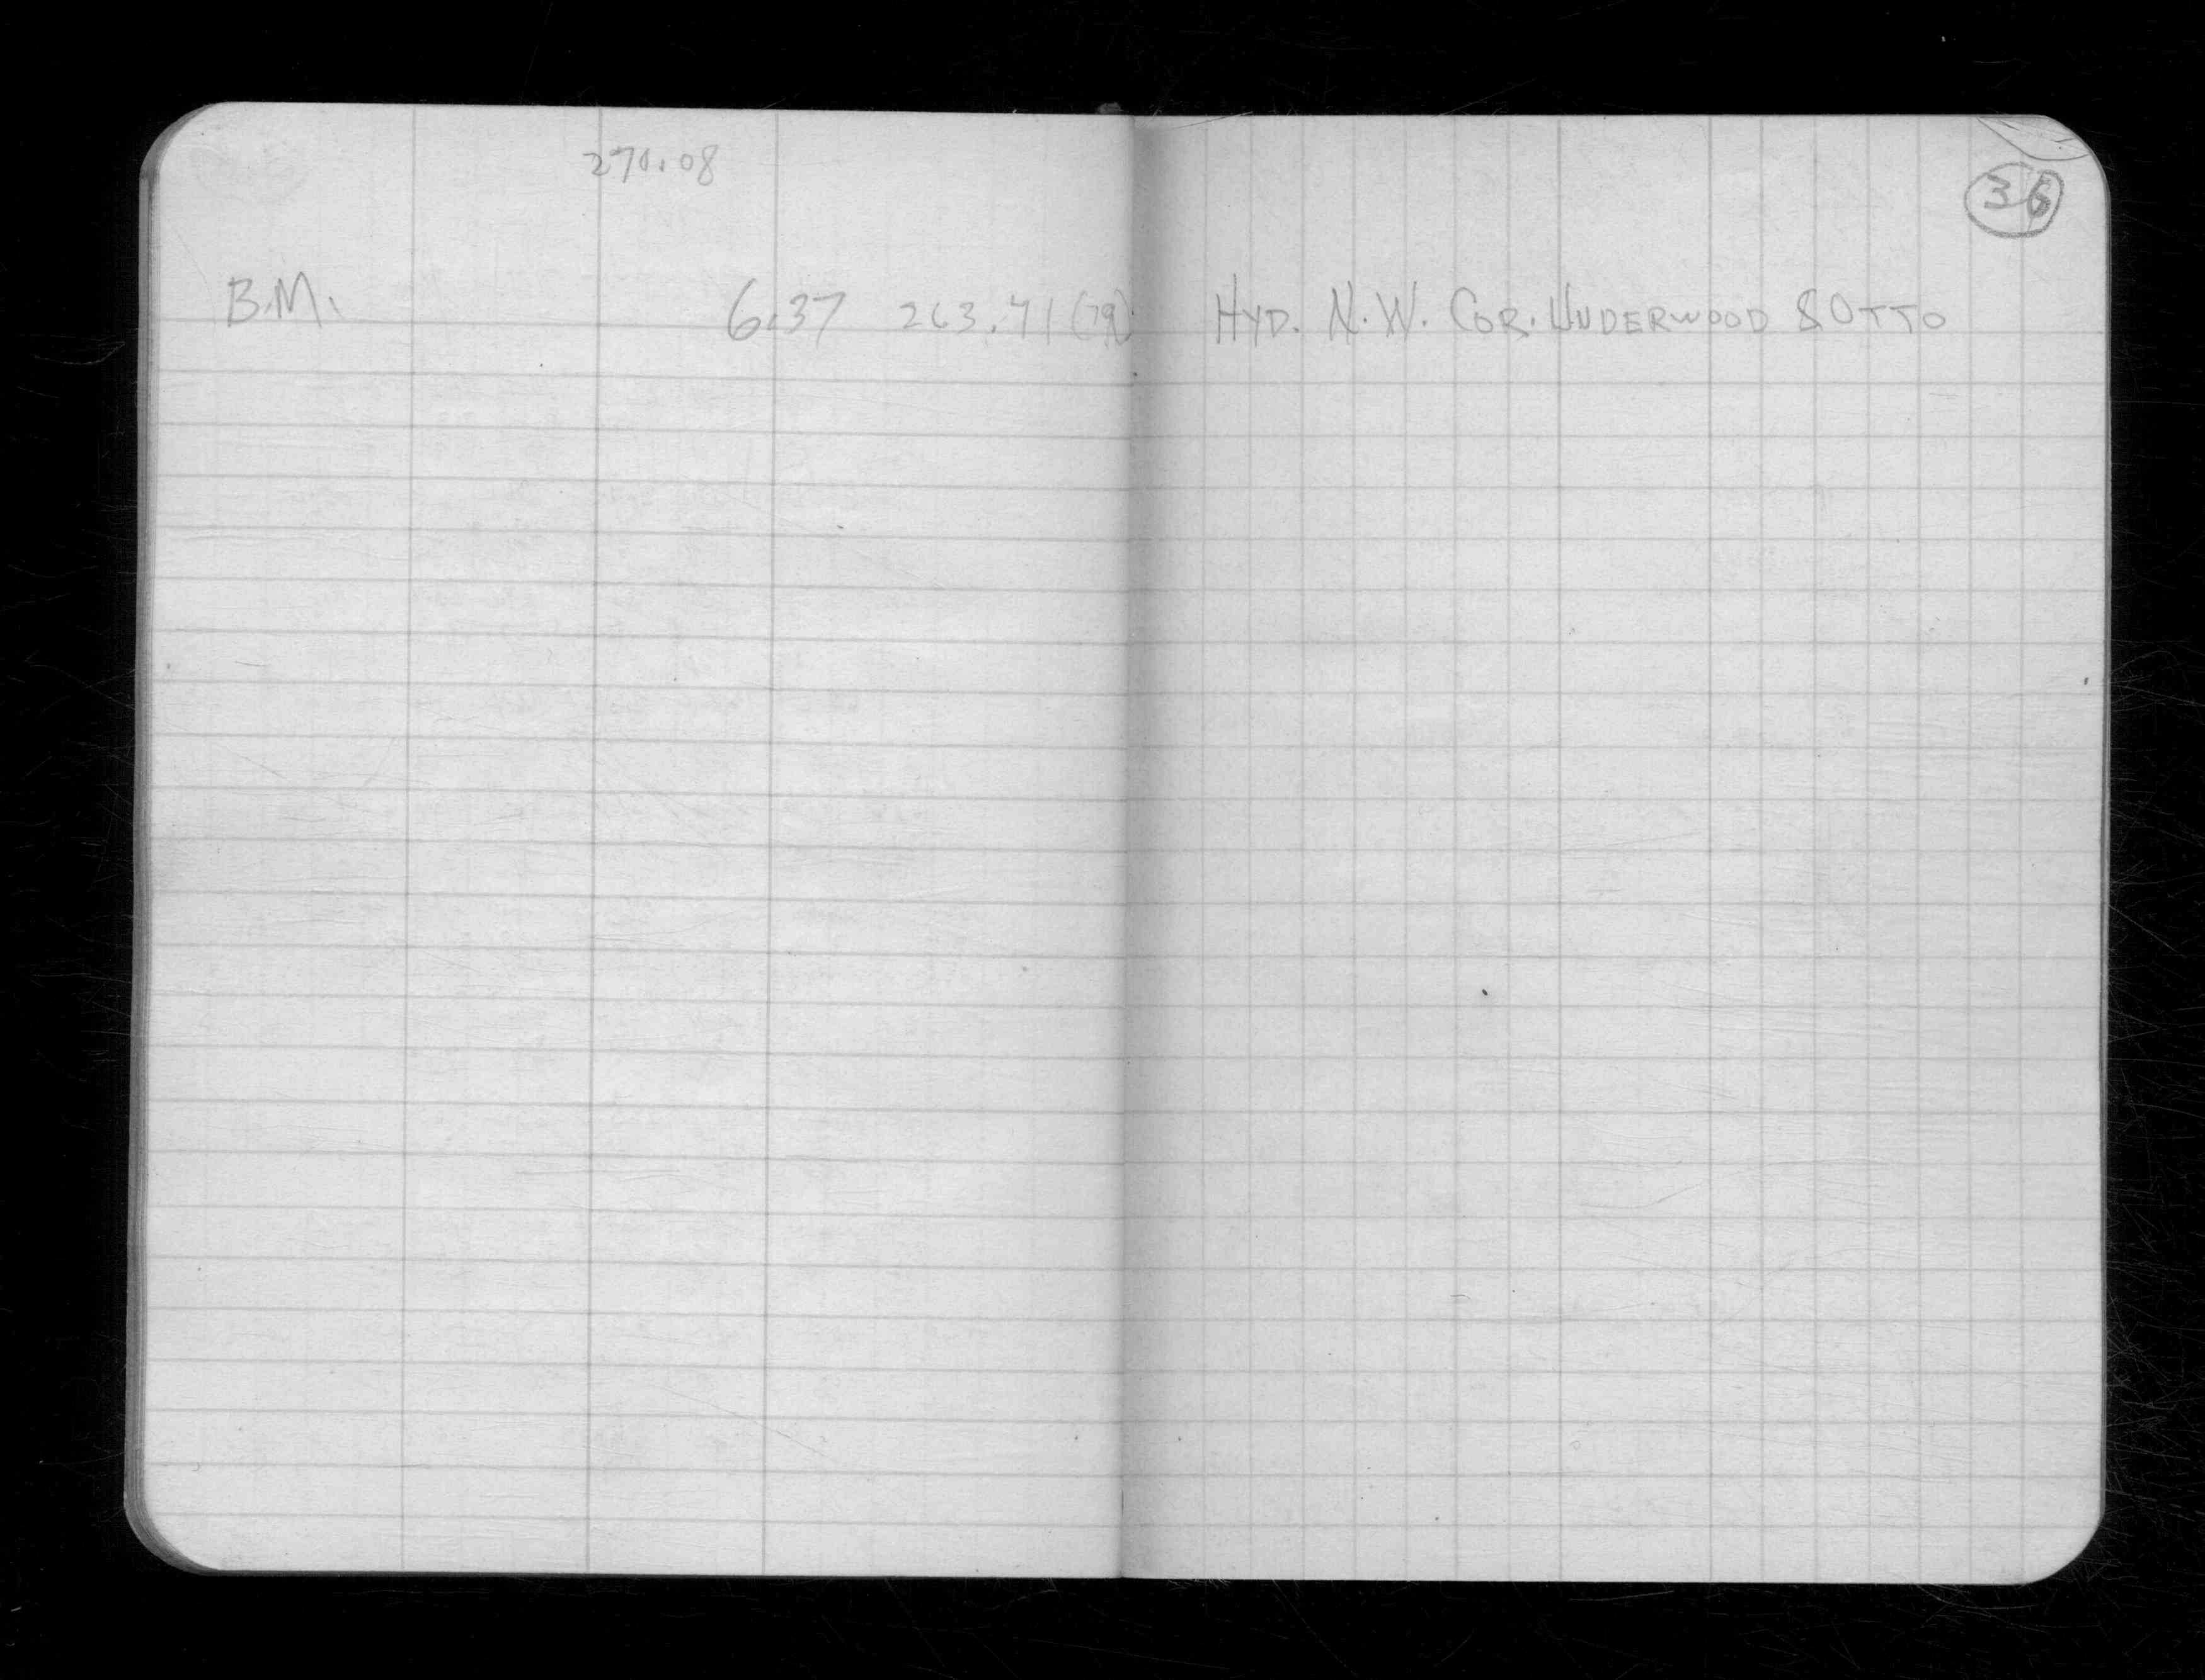 270.08
36
B.M. 6.37 263.71 (79) HYD. N.W. COR. UNDERWOOD & OTTO